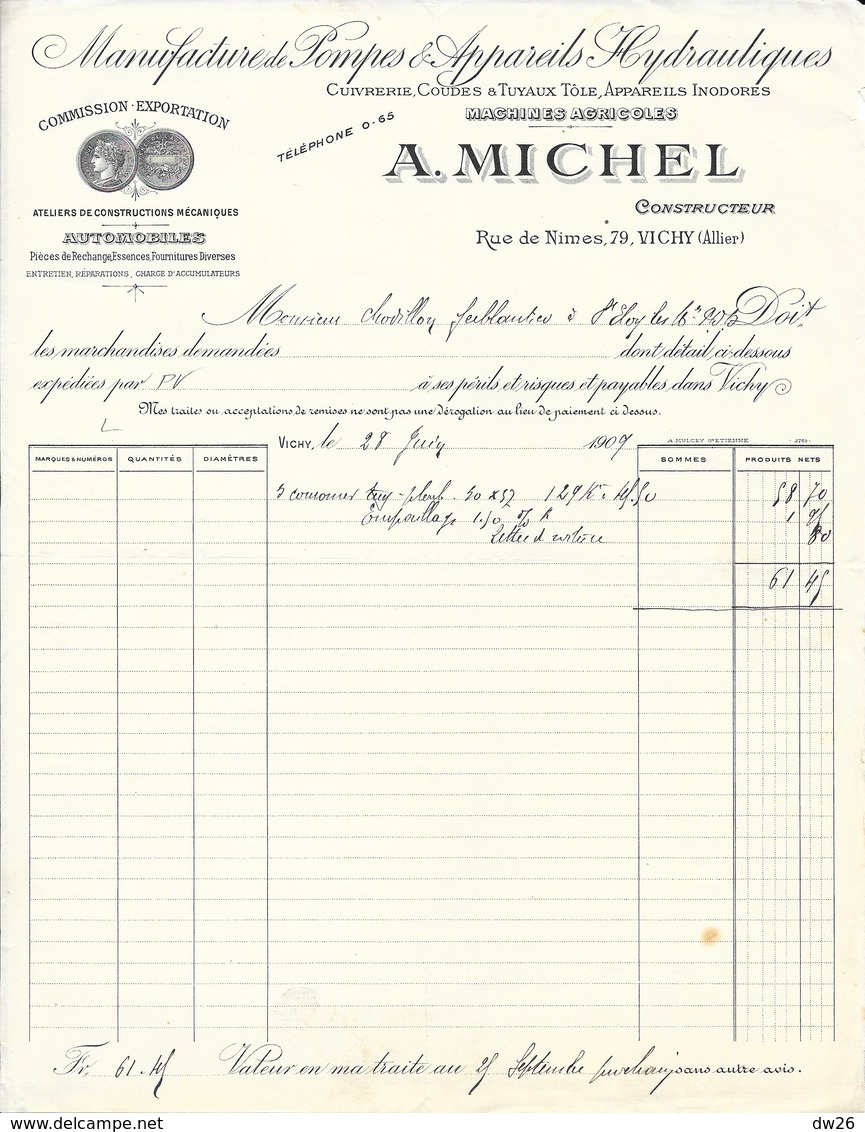 Manufacture de Pompes & Appareils Hydrauliques
Cuivrerie, Coudes & Tuyaux Tôle, Appareils Inodores
MACHINES AGRICOLES
COMMISSION - EXPORTATION
TÉLÉPHONE 0-65
A. MICHEL
CONSTRUCTEUR
Rue de Nimes, 79, VICHY (Allier)
ATELIERS DE CONSTRUCTIONS MÉCANIQUES
AUTOMOBILES
Pièces de Rechange, Essences, Fournitures Diverses
ENTRETIEN, RÉPARATIONS, CHARGE D'ACCUMULATEURS
Monsieur ferblantier à St Eloy les Doit
les marchandises demandées dont détail ci-dessous
expédiées par PV à ses périls et risques et payables dans Vichy
Mes traites ou acceptations de remises ne sont pas une dérogation au lieu de paiement ci dessus.
VICHY, le 28 Juin 1909
MARQUES & NUMÉROS QUANTITÉS DIAMÈTRES SOMMES PRODUITS NETS
tuy - plomb. 30 x 37 129 K 45.50 58 70
1.50 % K 1 95
Lettre d voiture 80
61 45
Fr. 61.45 Valeur en ma traite au 25 Septembre prochain sans autre avis.
dw26